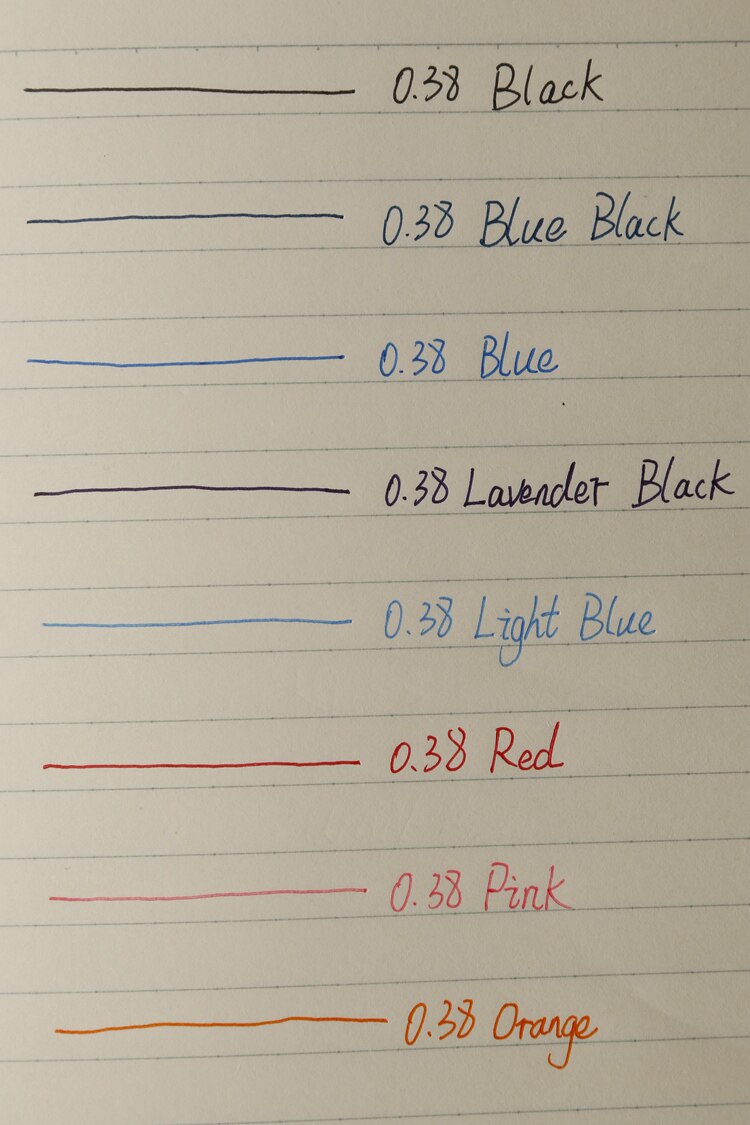 0.38 Black
0.38 Blue Black
0.38 Blue
0.38 Lavender Black
0.38 Light Blue
0.38 Red
0.38 Pink
0.38 Orange